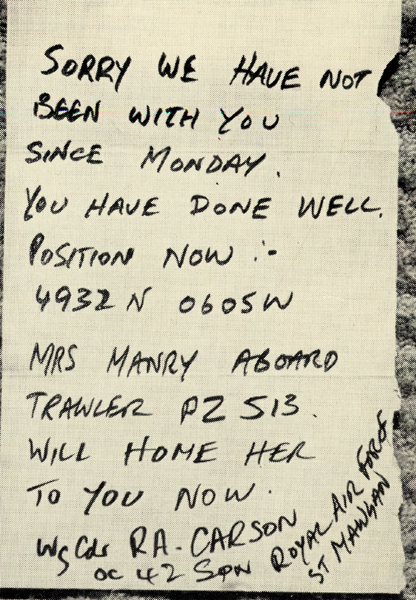 SORRY WE HAVE NOT
BEEN WITH YOU
SINCE MONDAY.
YOU HAVE DONE WELL.
POSITION NOW :-
4932 N 0605W
MRS MANRY ABOARD
TRAWLER PZ 513.
WILL HOME HER
TO YOU NOW.
Wg Cdr RA. CARSON
OC 42 SQN
ROYAL AIR FORCE
ST MAWGAN